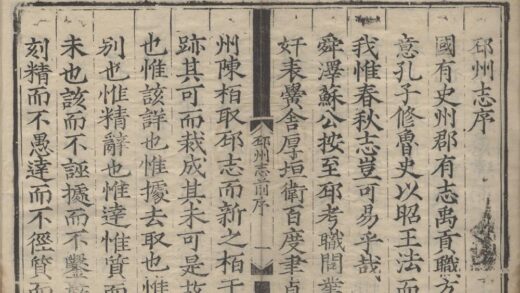 邳州志序
國有史州郡有志禹貢職方
意孔子修魯史以昭王法而
我惟春秋志豈可易乎哉
舜澤蘇公按至邳考職問業
奸表黌舍厚垣衛百度聿貞
邳州志前序
一
州陳柏取邳志而新之柏干
跡其可而裁成其未可是故
也惟該詳也惟據去取也惟
別也惟精辭也惟達惟質而
未也該而不誣據而不鑿
刻精而不愚達而不徑質而